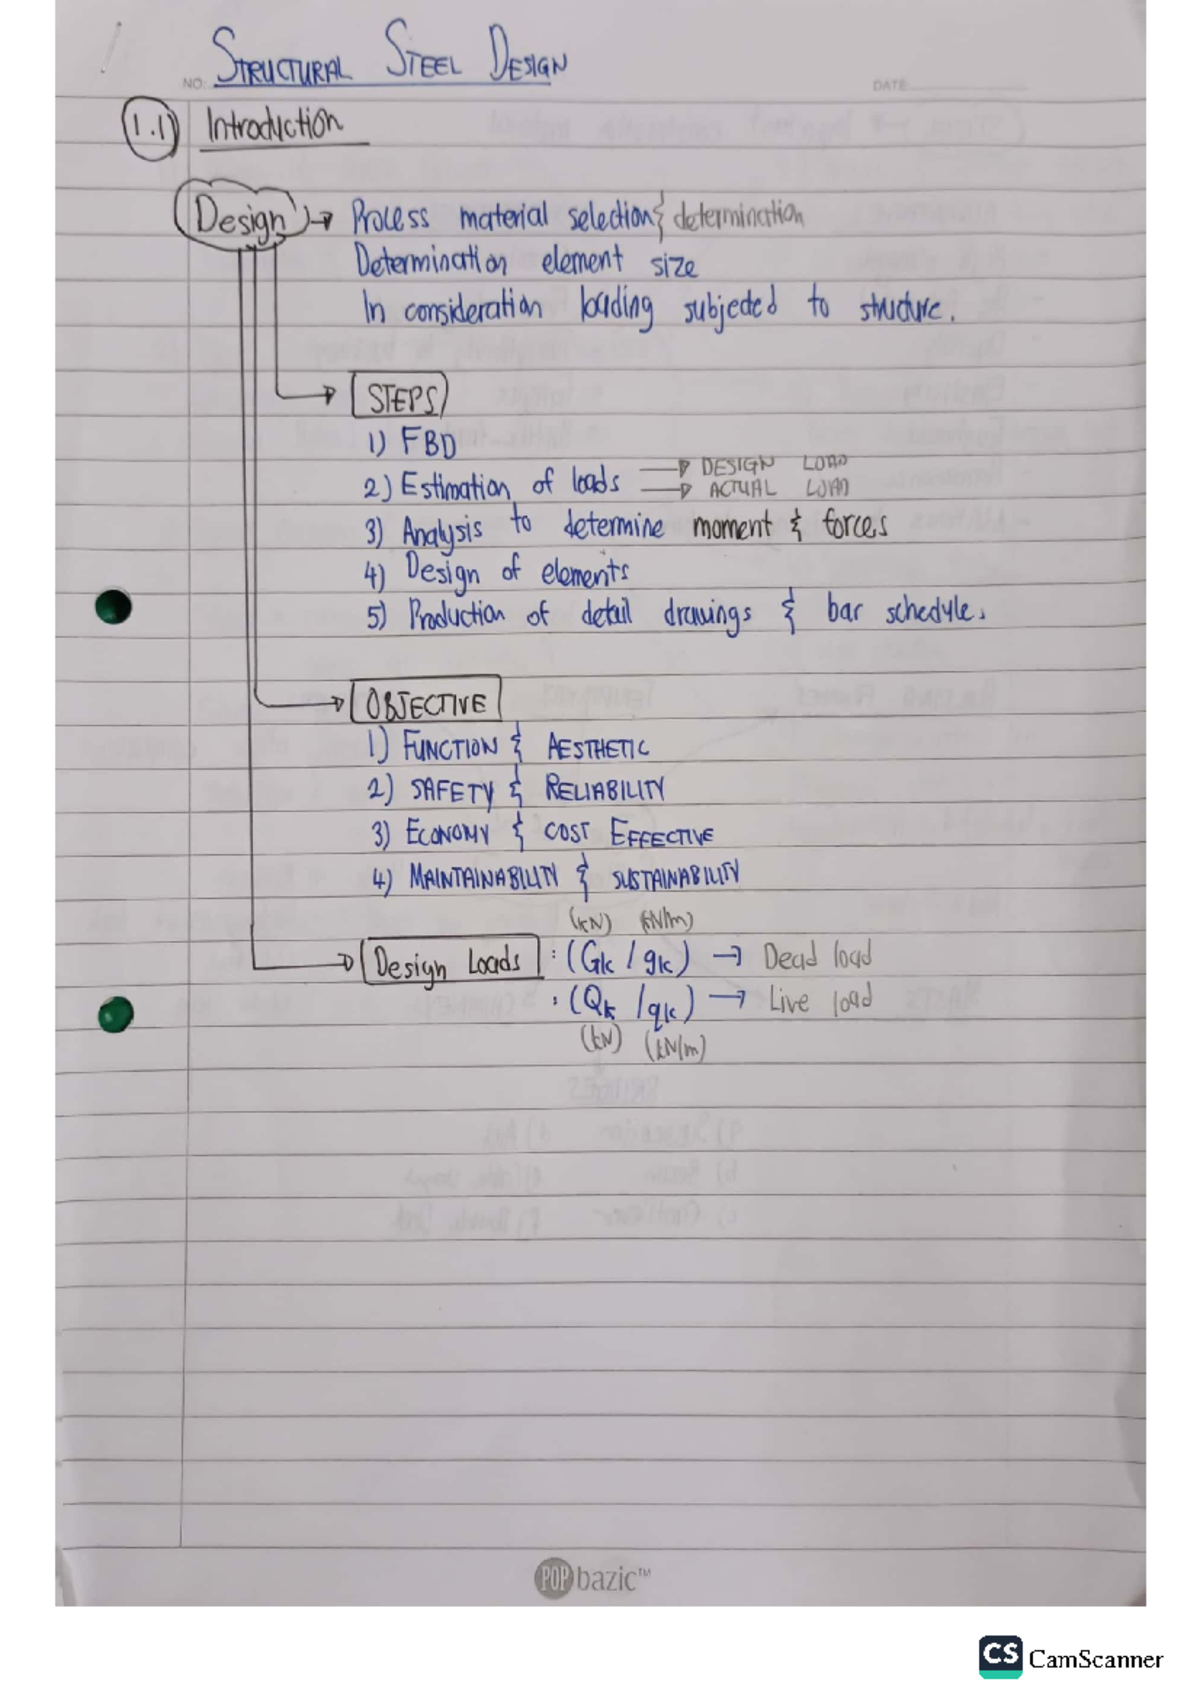 STRUCTURAL STEEL DESIGN
NO:
DATE:
1.1) Introduction
Design → Process material selection & determination
Determination element size
In consideration loading subjected to structure.
STEPS
1) FBD
2) Estimation of loads → DESIGN LOAD
→ ACTUAL LOAD
3) Analysis to determine moment & forces
4) Design of elements
5) Production of detail drawings & bar schedule.
OBJECTIVE
1) FUNCTION & AESTHETIC
2) SAFETY & RELIABILITY
3) ECONOMY & COST EFFECTIVE
4) MAINTAINABILITY & SUSTAINABILITY
(kN) (kN/m)
Design Loads : (Gk / gk) → Dead load
: (Qk / qk) → Live load
(kN) (kN/m)
POP bazic™
CS CamScanner